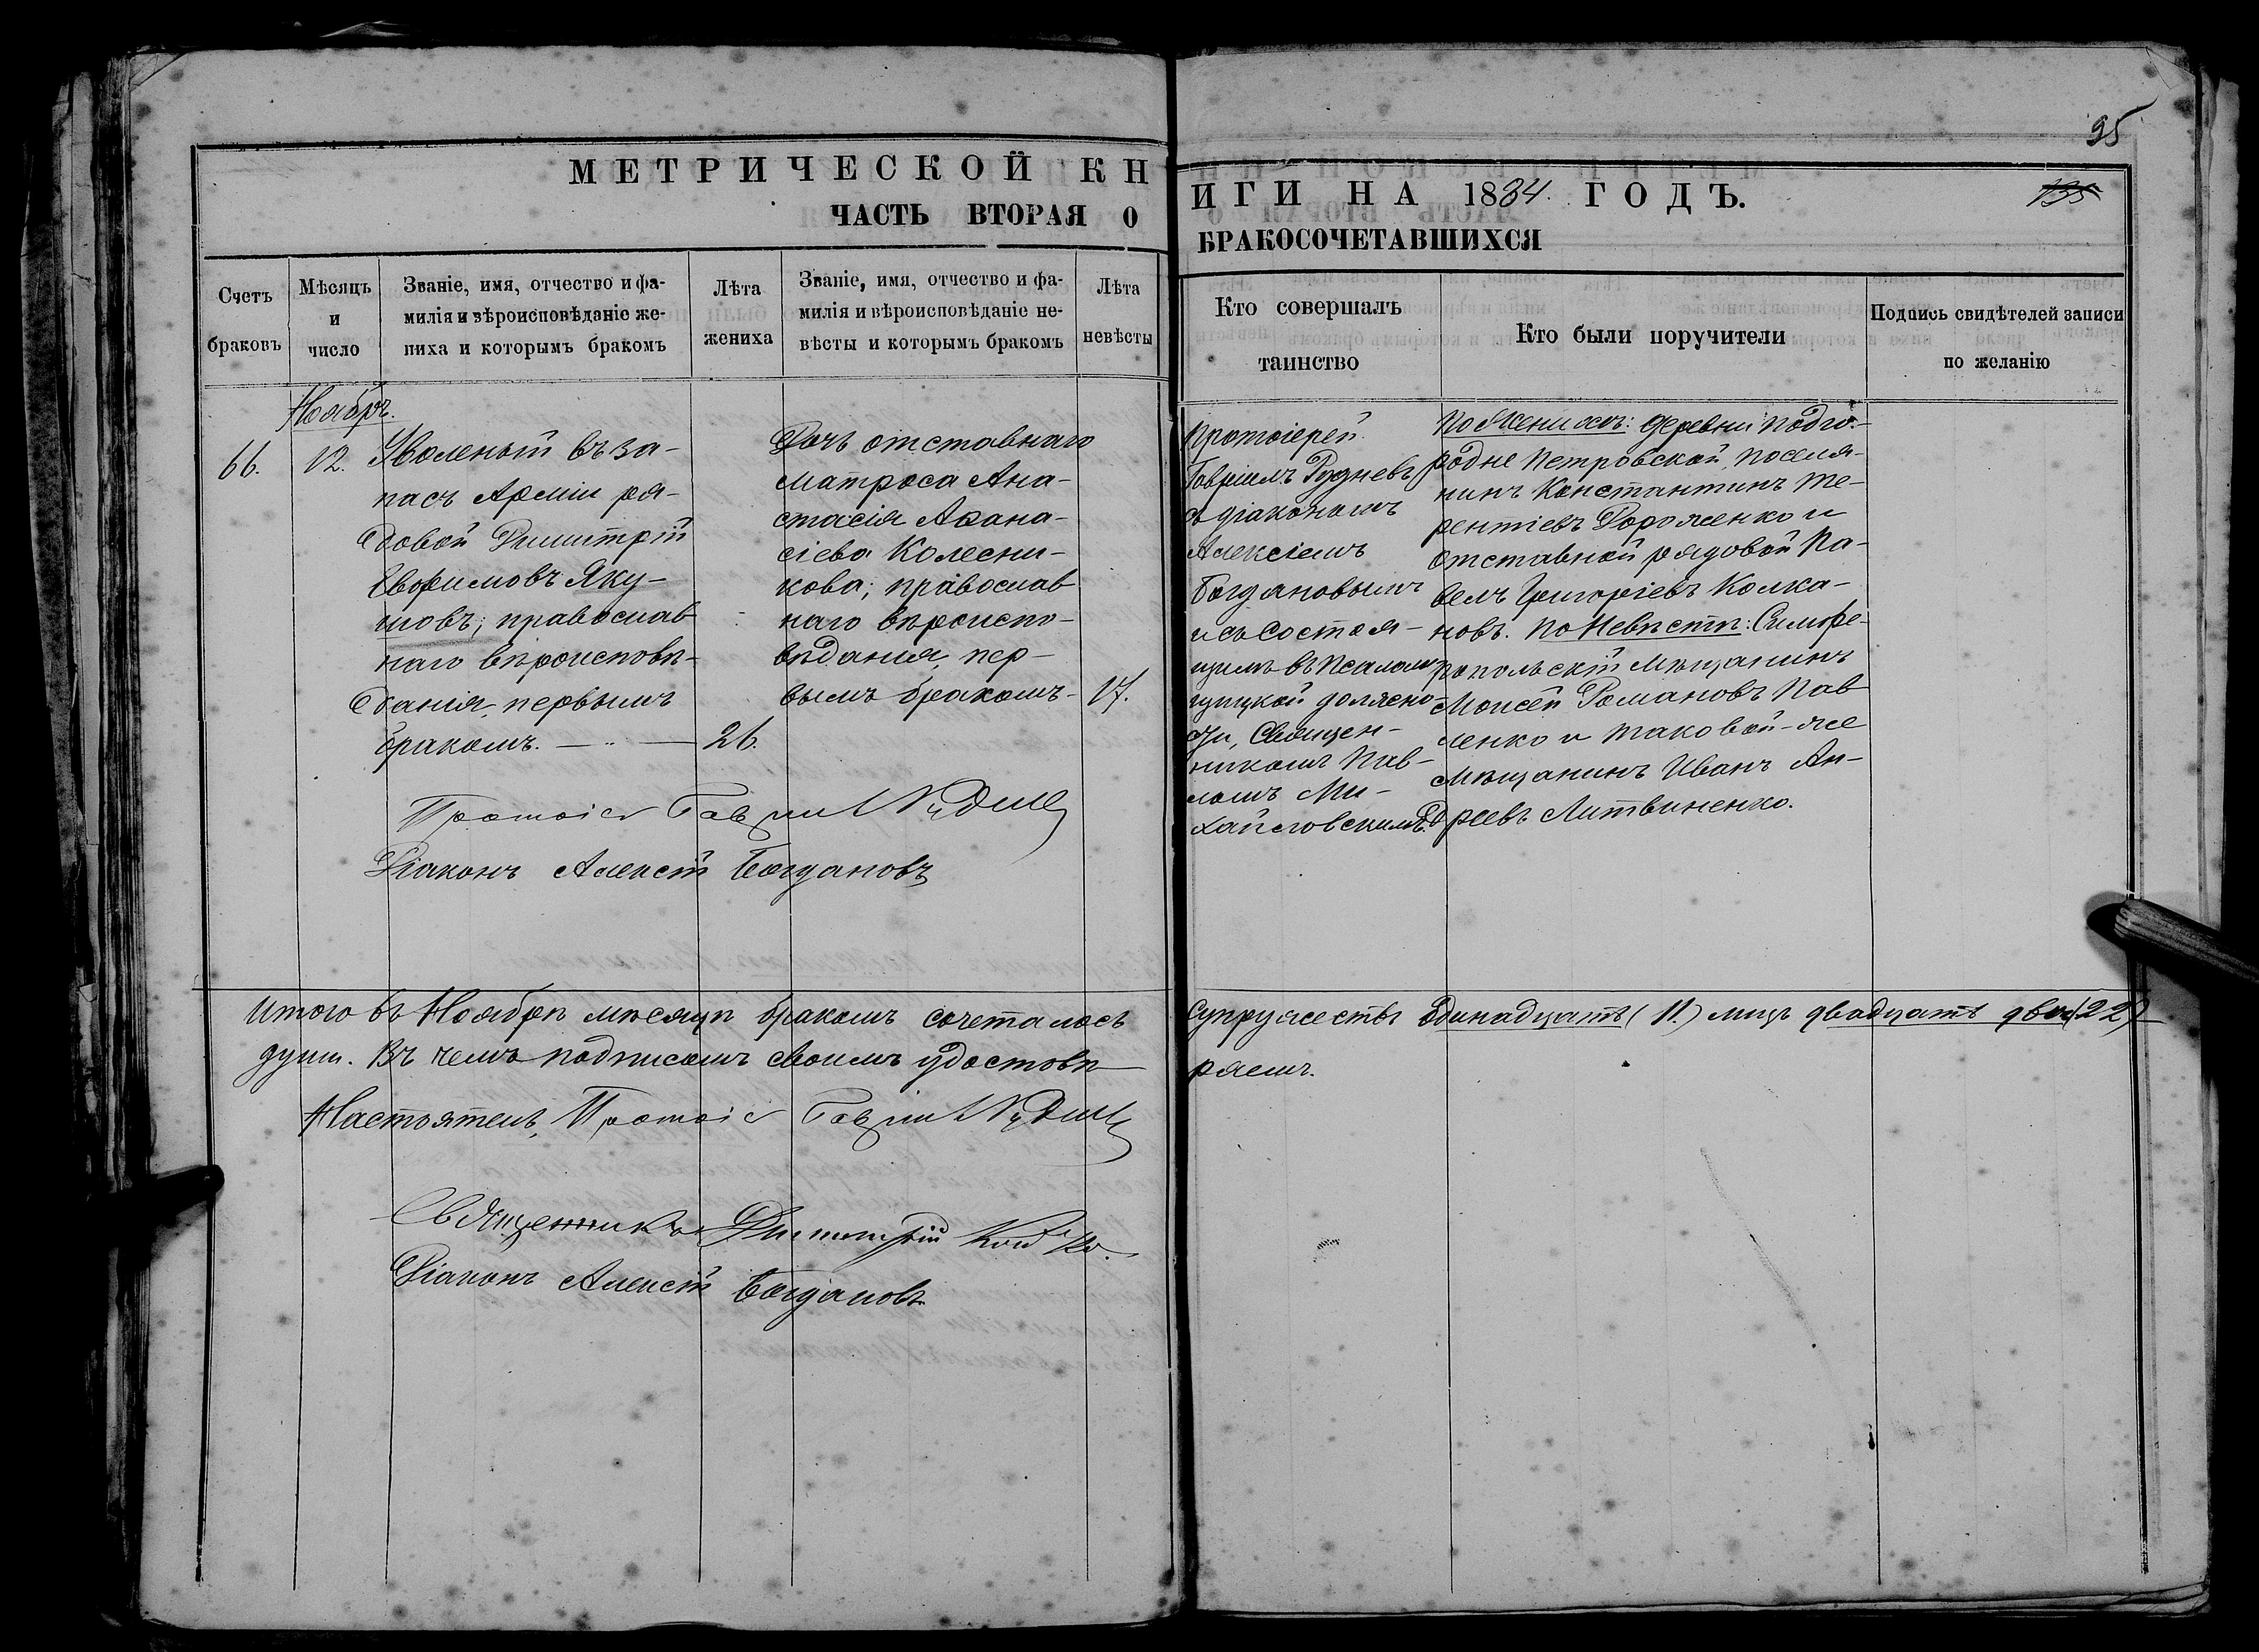 95
МЕТРИЧЕСКОЙ КН
ИГИ НА 1884. ГОДЪ.
135
ЧАСТЬ ВТОРАЯ О
БРАКОСОЧЕТАВШИХСЯ
Счетъ
браковъ
Мѣсяцъ
и
число
Званіе, имя, отчество и фа-
милія и вѣроисповѣданіе же-
ниха и которымъ бракомъ
Лѣта
жениха
Званіе, имя, отчество и фа-
милія и вѣроисповѣданіе не-
вѣсты и которымъ бракомъ
Лѣта
невѣсты
Кто совершалъ
таинство
Кто были поручители
Подпись свидѣтелей записи
по желанію
66.
Ноябрь.
12.
Уволеный въ за-
пасъ Арміи ря-
довой Димитрій
Евфимовъ Яку-
шовъ; православ
наго вѣроисповѣ-
данія, первымъ
бракомъ.
26.
Дочь отставнаго
матроса Ана-
стасія Аѳана-
сіева Колесни-
кова; православ
наго вѣроиспо-
вѣданія, пер-
вымъ бракомъ-
17.
Протоіерей
Гавріилъ Рудневъ
съ діакономъ
Алексіемъ
Богдановымъ
и съ состоя-
щимъ въ псалом
щицкой должно-
сти, Священ-
никомъ Пав-
ломъ Ми-
хайловскимъ.
По Женихѣ: деревни Подго-
родне Петровской, поселя-
нинъ Константинъ Те-
рентіевъ Дороженко и
отставной рядовой Па-
велъ Григоріевъ Колка-
новъ. По Невѣстѣ: Симфе-
ропольскій мѣщанинъ
Моисей Романовъ Пав
ленко и таковой-же
мѣщанинъ Иванъ Ан-
дреевъ Литвиненко.
Протоіер Гавріилъ Рудневъ
Діаконъ Алексій Богдановъ
Итого въ Ноябрѣ мѣсяцѣ бракомъ сочеталось
супружествъ одинадцать (11.) лицъ двадцать два (22)
душ. Въ чемъ подписомъ своимъ удостовѣ
ряемъ.
Настоятель, Протоіер Гавріилъ Рудневъ
Священникъ Димитрій
Діаконъ Алексій Богдановъ